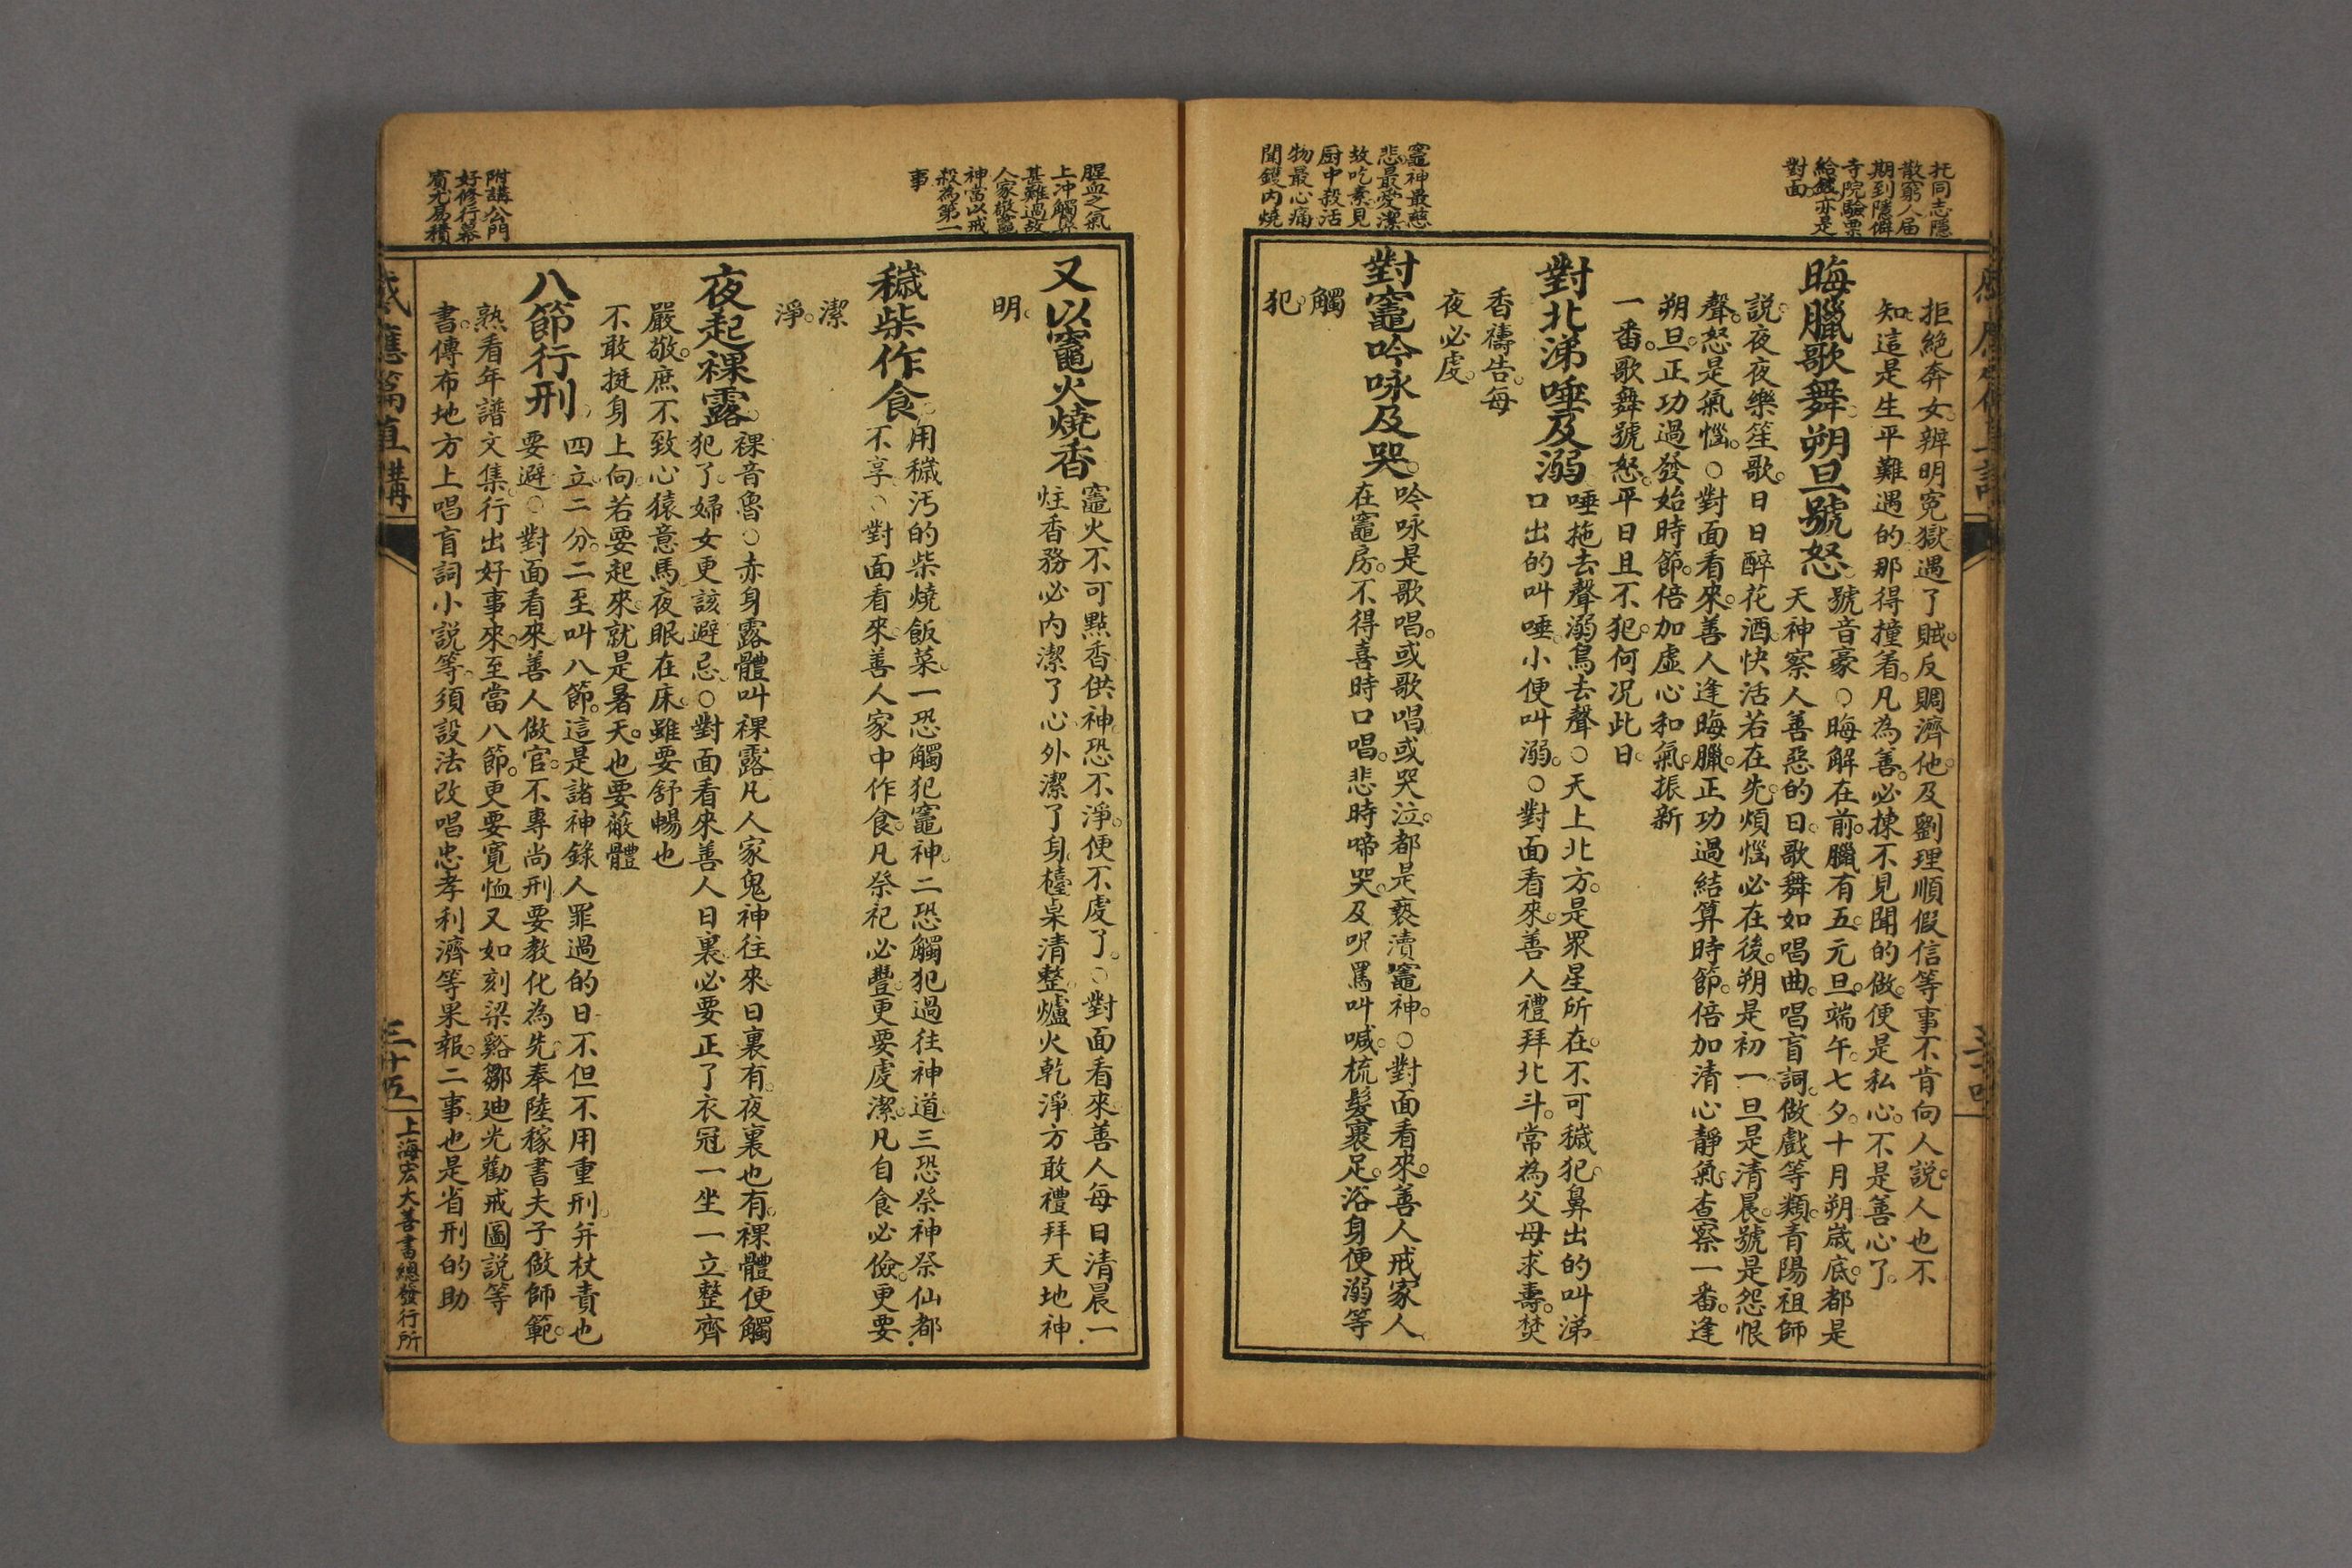 托同志隱
散窮人届
期到隱僻
寺院驗票
給錢亦是
對面
竈神最慈
悲最愛潔
故吃素見
厨中殺活
物最心痛
聞鑊内燒
拒絶奔女。辨明寃獄遇了賊。反賙濟他。及劉理順假信等事不肯向人説。人也不
知。這是生平難遇的那得撞着。凡為善。必揀不見聞的做。便是私心。不是善心了。
晦臘歌舞。朔旦號怒。
號音豪。○晦解在前。臘有五。元旦。端午。七夕。十月朔歲底。都是
天神察人善惡的日。歌舞如唱曲。唱盲詞。做戲等類。青陽祖師
説。夜夜樂笙歌。日日醉花酒。快活若在先。煩惱必在後。朔是初一旦是清晨。號是怨恨
聲。怒是氣惱。○對面看來。善人逢晦臘。正功過結算時節。倍加清心靜氣。查察一番。逢
朔旦。正功過發始時節。倍加虚心和氣。振新
一番。歌舞號怒。平日且不犯。何况此日。
對北涕唾及溺
唾拖去聲溺鳥去聲○天上北方。是眾星所在。不可穢犯。鼻出的叫涕
口出的叫唾。小便叫溺。○對面看來。善人禮拜北斗。常為父母求壽。焚
香禱告。每
夜必虔。
對竈吟咏及哭。
吟咏是歌唱。或歌唱。或哭泣。都是褻瀆竈神。○對面看來。善人戒家人、
在竈房。不得喜時口唱。悲時啼哭。及呪罵叫喊。梳髮裹足。浴身便溺等
觸
犯。
三十四
腥血之氣
上冲觸鼻
甚難過故
人家敬竈
神當以戒
殺為第一
事
附講公門
好修行幕
賓尤易積
又以竈火燒香
竈火不可點香供神。恐不淨。便不虔了。○對面看來。善人每日清晨一
炷香務必内潔了心。外潔了身。檯桌清整。爐火乾淨。方敢禮拜天地神
明。
穢柴作食。
用穢汚的柴燒飯菜。一恐觸犯竈神。二恐觸犯過往神道。三恐祭神祭仙都
不享。○對面看來。善人家中作食。凡祭祀必豐。更要虔潔。凡自食必儉。更要
潔
淨。
夜起裸露。
裸音魯○赤身露體叫裸露凡人家鬼神往來。日裏有。夜裏也有。裸體便觸
犯了。婦女更該避忌。○對面看來善人日裏必要正了衣冠一坐一立。整齊
嚴敬。庶不致心猿意馬。夜眠在床。雖要舒暢也
不敢挺身上向。若要起來。就是暑天。也要蔽體
八節行刑。
四立二分。二至叫八節。這是諸神錄人罪過的日不但不用重刑。并杖責也
要避。○對面看來善人做官。不專尚刑。要教化為先。奉陸稼書夫子做師範。
熟看年譜文集。行出好事來。至當八節。更要寬恤又如刻梁谿鄒廸光勸戒圖説等
書。傳布地方上唱盲詞小説等。須設法改唱忠孝利濟等果報。二事。也是省刑的助
感應篇直講
三十五
上海宏大善書總發行所